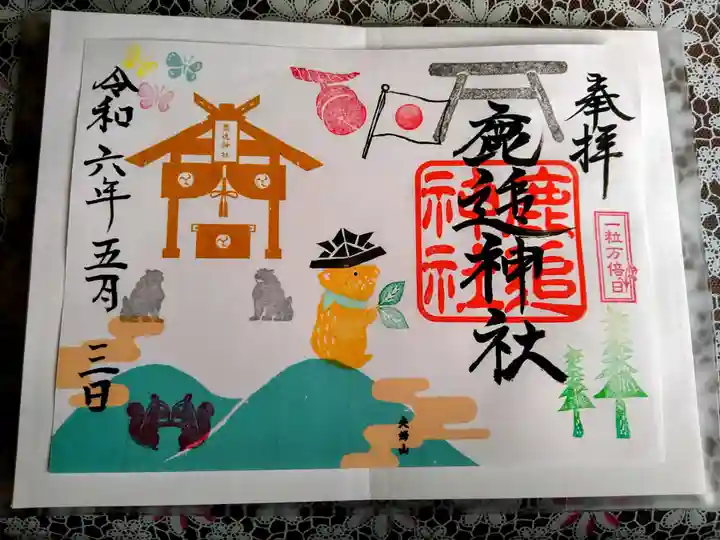 奉拝
一粒万倍日
鹿追神社
鹿追
神社
鹿追神社
夫婦山
令和六年五月三日